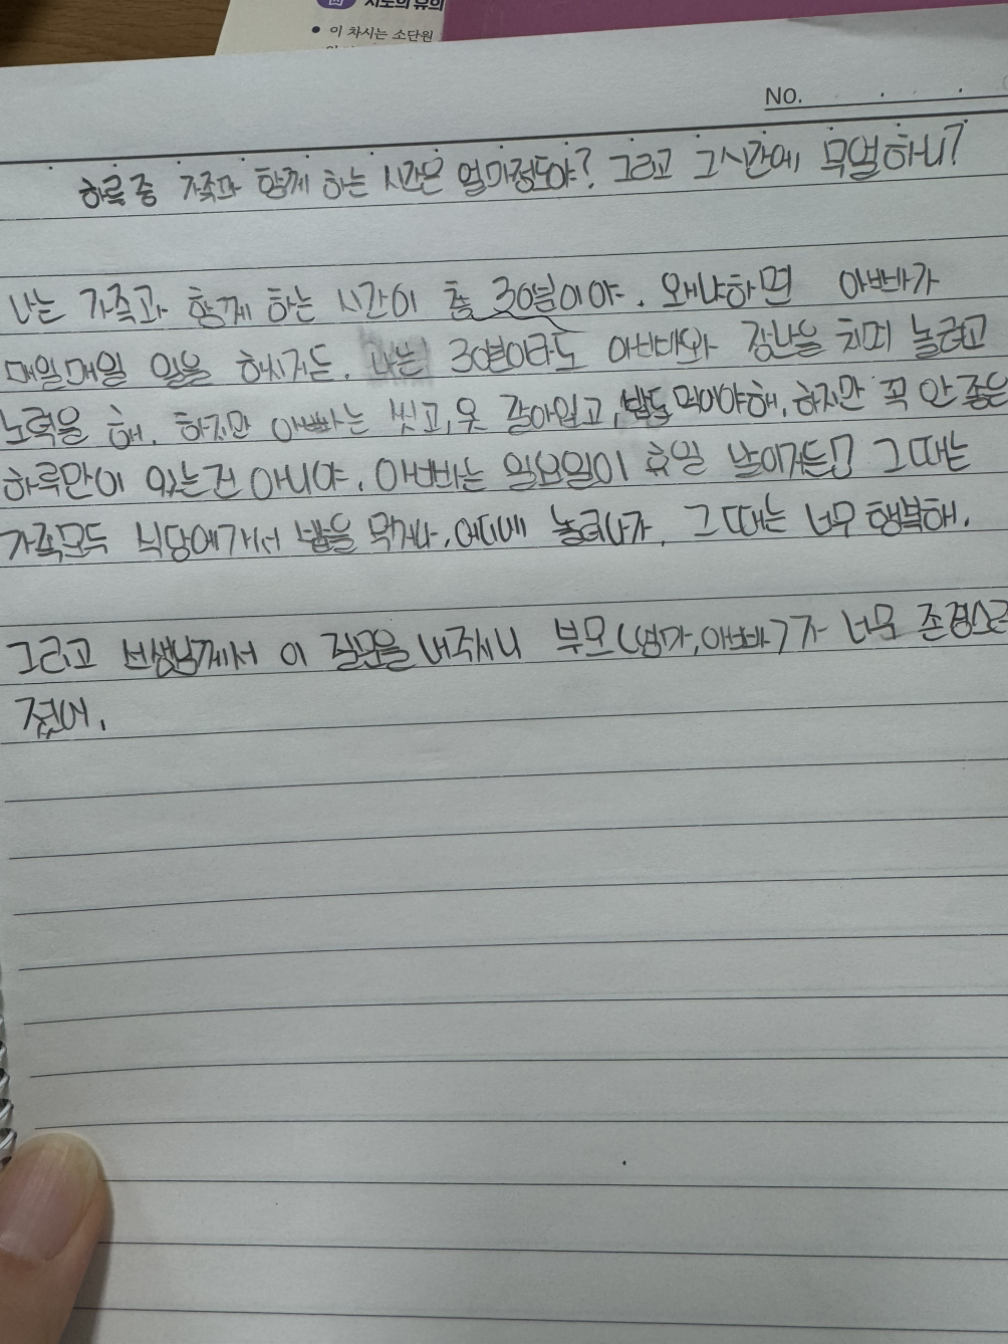 지도의 유의
• 이 차시는 소단원
No.
하루 중 가족과 함께 하는 시간은 얼마정도야? 그리고 그시간에 무얼하니?
나는 가족과 함께 하는 시간이 총 30분이야. 왜냐하면 아빠가
매일매일 일을 하시거든. 나는 30분이라도 아빠와 장난을 치며 놀려고
노력을 해. 하지만 아빠는 씻고, 옷 갈아입고, 밥도 먹어야해. 하지만 꼭 안 좋은
하루만이 있는건 아니야. 아빠는 일요일이 휴일 날이거든! 그때는
가족모두 식당에가서 밥을 먹거나, 어디에 놀러나가. 그 때는 너무 행복해.
그리고 선생님께서 이 질문을 내주시니 부모(엄마,아빠)가 너무 존경스러
졌어.